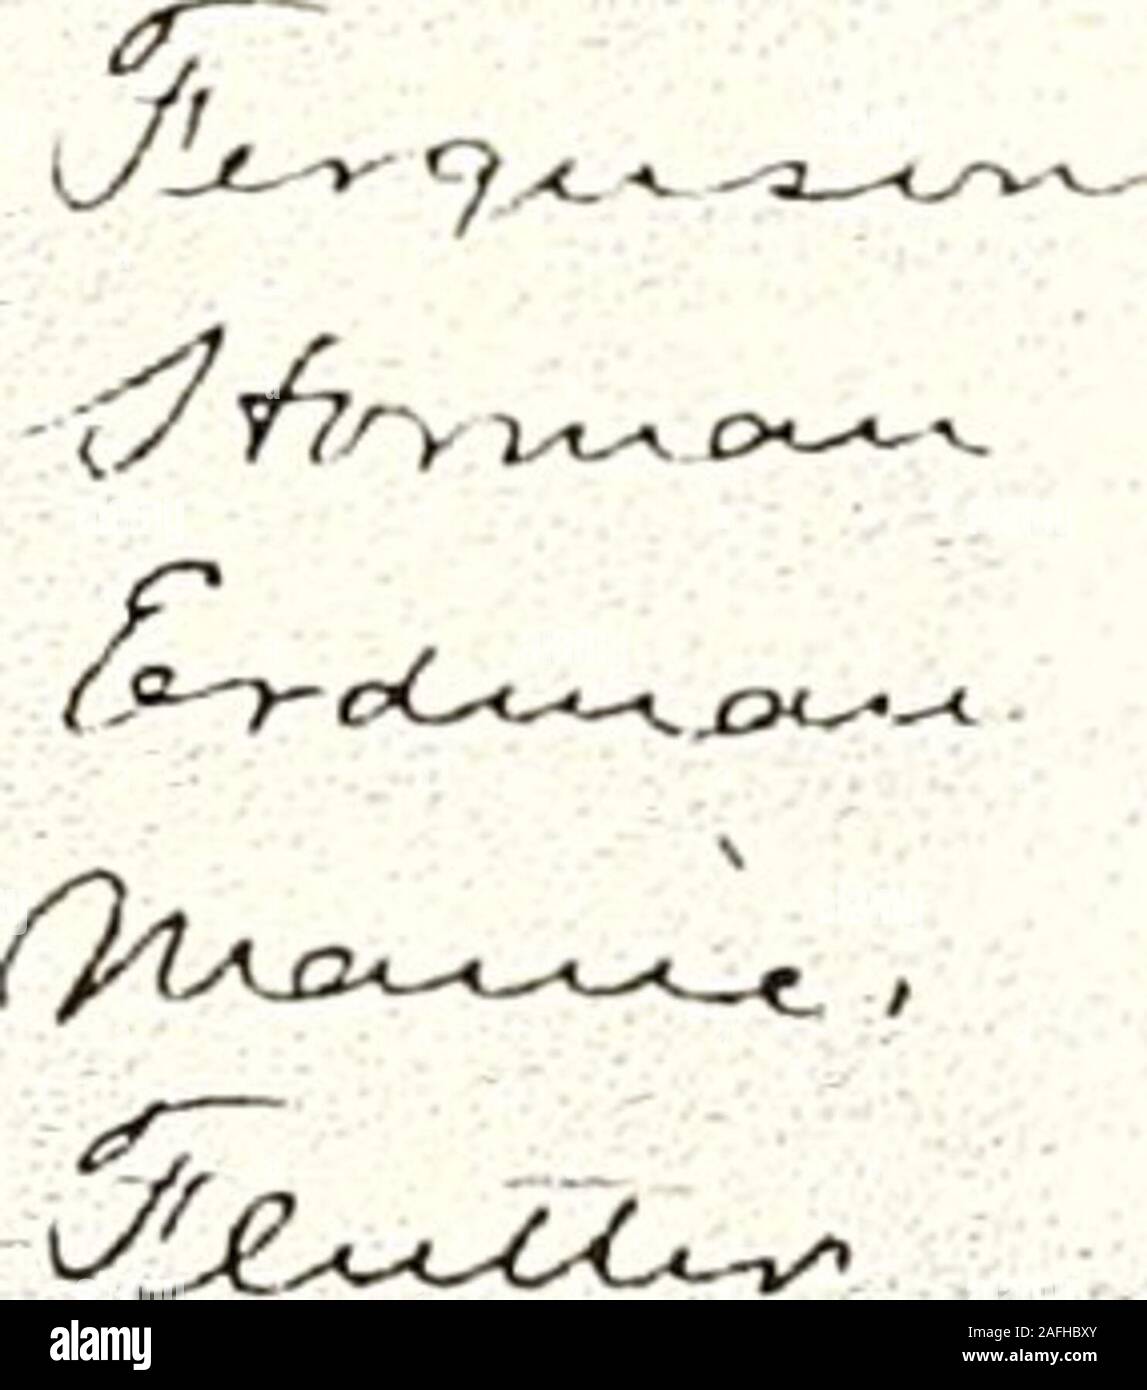 Ferguson
Storman
Erdman
Mamie.
Flutter
alamy
Image ID: 2AFHBXY
www.alamy.com